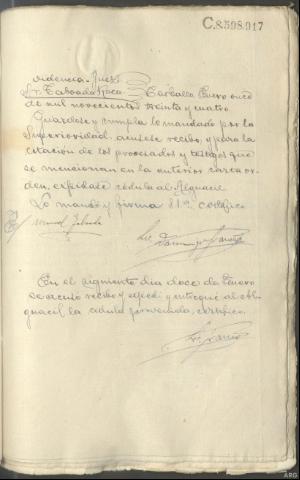 C.8598.917
videncia - Juez
Sr. Taboada Roca. - Carballo Enero once
de mil novecientos treinta y cuatro.
Guardese y cumplase lo mandado por la
Superioridad, acúsese recibo, y para la
citacion de los procesados y testigos que
se mencionan en la anterior carta or-
den, expidase cédula al Alguacil.
Lo mandó y firma S.Sª. certifico
Manuel Taboada
En el siguiente dia doce de Enero
se acusó recibo y expedí y entregué al Al-
guacil la cédula prevenida, certifico.
ARG